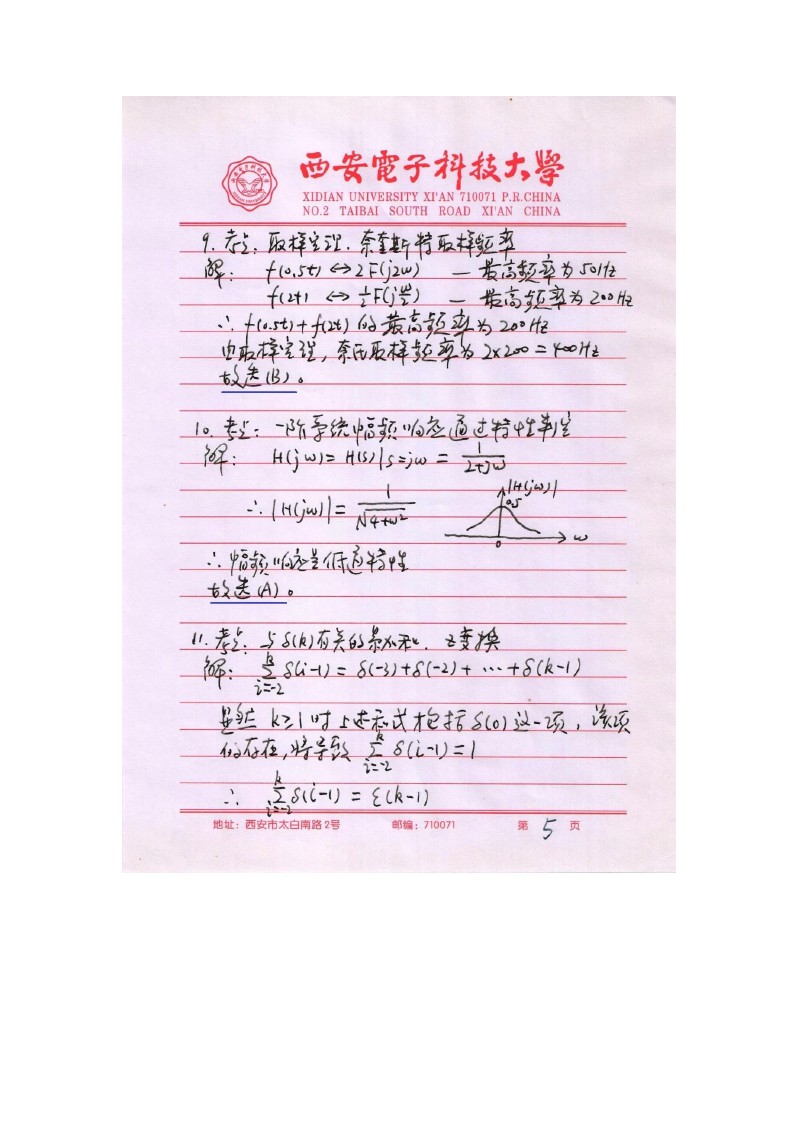 西安電子科技大學
XIDIAN UNIVERSITY XI'AN 710071 P.R.CHINA
NO.2 TAIBAI SOUTH ROAD XI'AN CHINA
9. 考点: 取样定理. 奈奎斯特取样频率
解: f(0.5t) ↔ 2F(j2ω) — 最高频率为50Hz
f(2t) ↔ ½F(jω/2) — 最高频率为200Hz
∴ f(0.5t)+f(2t) 的最高频率为200Hz
由取样定理, 奈氏取样频率为2×200=400Hz
故选(B)。
10. 考点: 一阶系统幅频响应通过特性判定
解: H(jω)= H(s)|s=jω = 1/(2+jω)
∴ |H(jω)| = 1/√(4+ω²)
|H(jω)|
0.5
0
ω
∴ 幅频响应是低通特性
故选(A)。
11. 考点: 与δ(k)有关的累加和. z变换
解: ∑_{i=-2}^{k} δ(i-1) = δ(-3)+δ(-2)+ ⋯ +δ(k-1)
显然 k≥1时上述和式包括δ(0)这一项, 该项
的存在, 将导致 ∑_{i=-2}^{k} δ(i-1)=1
∴ ∑_{i=-2}^{k} δ(i-1) = ε(k-1)
地址: 西安市太白南路2号 邮编: 710071 第 5 页